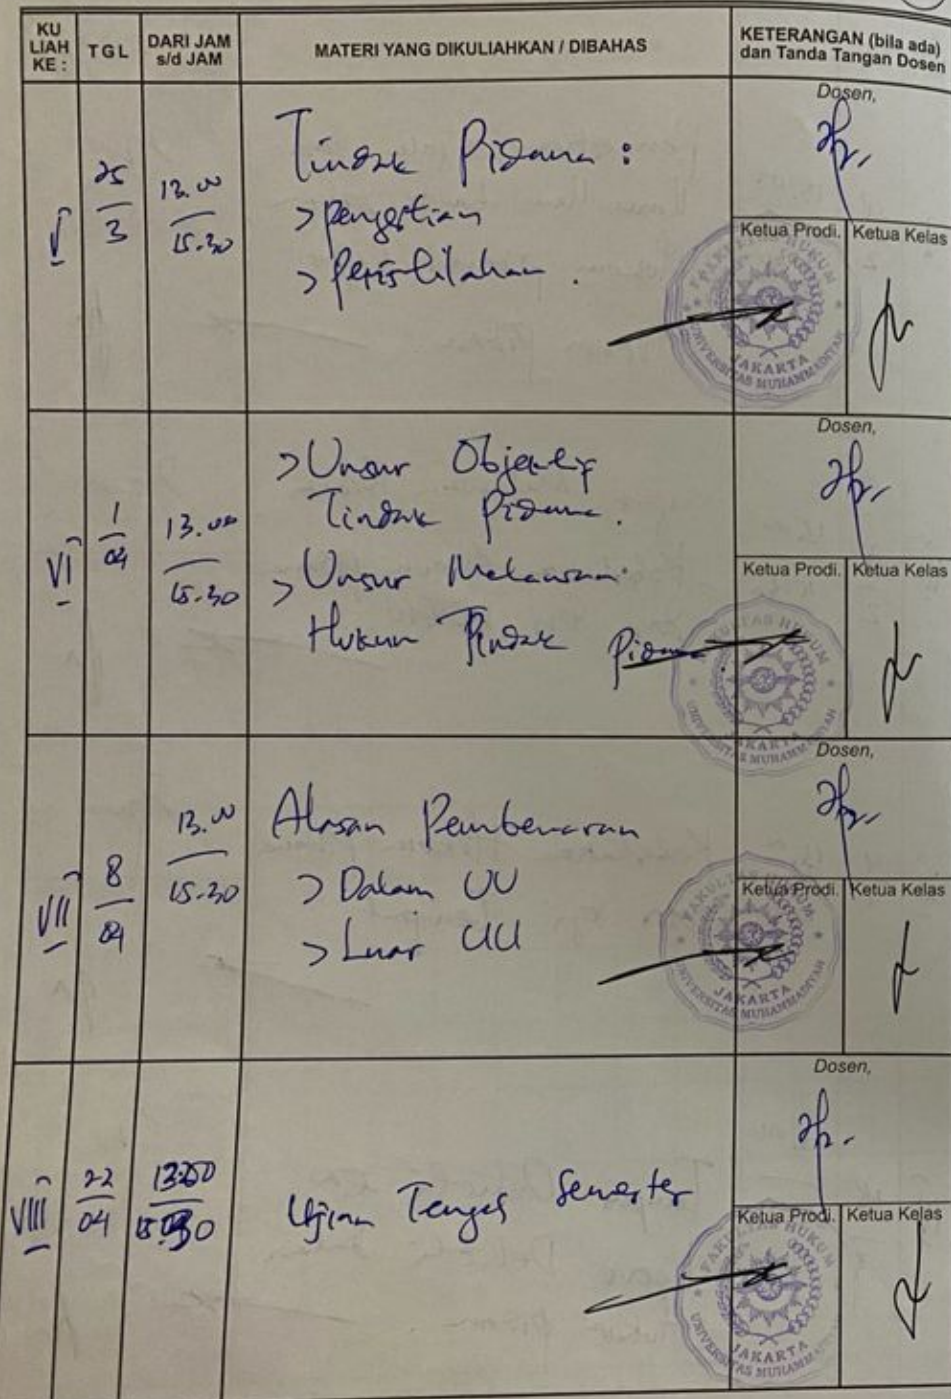 KU LIAH KE :
TGL
DARI JAM s/d JAM
MATERI YANG DIKULIAHKAN / DIBAHAS
KETERANGAN (bila ada) dan Tanda Tangan Dosen
V
25
3
13.00
15.30
Tindak Pidana :
> Pengertian
> Peristilahan .
Dosen,
Ketua Prodi.
Ketua Kelas
FAKULTAS HUKUM
UNIVERSITAS MUHAMMADIYAH
JAKARTA
VI
1
04
13.00
15.30
> Unsur Objektif
Tindak Pidana.
> Unsur Melawan
Hukum Tindak Pidana.
Dosen,
Ketua Prodi.
Ketua Kelas
FAKULTAS HUKUM
UNIVERSITAS MUHAMMADIYAH
JAKARTA
VII
8
04
13.00
15.30
Alasan Pembenaran
> Dalam UU
> Luar UU
Dosen,
Ketua Prodi.
Ketua Kelas
FAKULTAS HUKUM
UNIVERSITAS MUHAMMADIYAH
JAKARTA
VIII
22
04
Ujian Tengah Semester
Dosen,
Ketua Prodi.
Ketua Kelas
FAKULTAS HUKUM
UNIVERSITAS MUHAMMADIYAH
JAKARTA